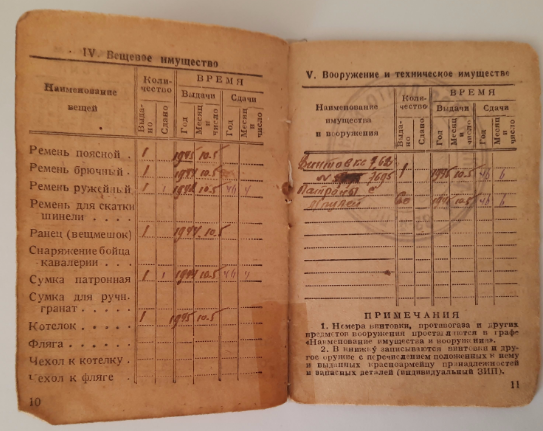 IV. Вещевое имущество
Наименование вещей
Количество
ВРЕМЯ
Выдачи
Сдачи
Выдано
Сдано
Год
Месяц и число
Год
Месяц и число
Ремень поясной 1 10.5
Ремень брючный 1 10.5
Ремень ружейный 1 1 10.5
Ремень для скатки
шинели
Ранец (вещмешок) 1 10.5
Снаряжение бойца
кавалерии
Сумка патронная 1 1 10.5
Сумка для ручн.
гранат
Котелок 1 1945 10.5
Фляга
Чехол к котелку
Чехол к фляге
10
V. Вооружение и техническое имущество
Наименование
имущества
и вооружения
Количество
ВРЕМЯ
Выдачи
Сдачи
Выдано
Год
Месяц и число
Год
Месяц и число
Винтовка 1 10.5
Патроны
10.5
ПРИМЕЧАНИЯ
1. Номера винтовки, противогаза и других
предметов вооружения проставляются в графе
«Наименование имущества и вооружения».
2. В книжку записываются винтовка и дру-
гое оружие с перечислением положенных к нему
и выданных красноармейцу принадлежностей
и запасных деталей (индивидуальный ЗИП).
11